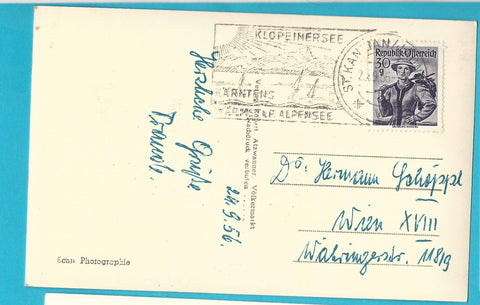 KLOPEINERSEE
KÄRNTENS
WÄRMSTER ALPENSEE
ST. KANZIAN
Republik Österreich
30
g
Herzliche Grüße
24.9.56.
Verlag Robert Atzwanner, Völkermarkt
Nachdruck verboten
Dr. Hermann Schöppl
Wien XVIII
Währingerstr. 118/9
Echte Photographie